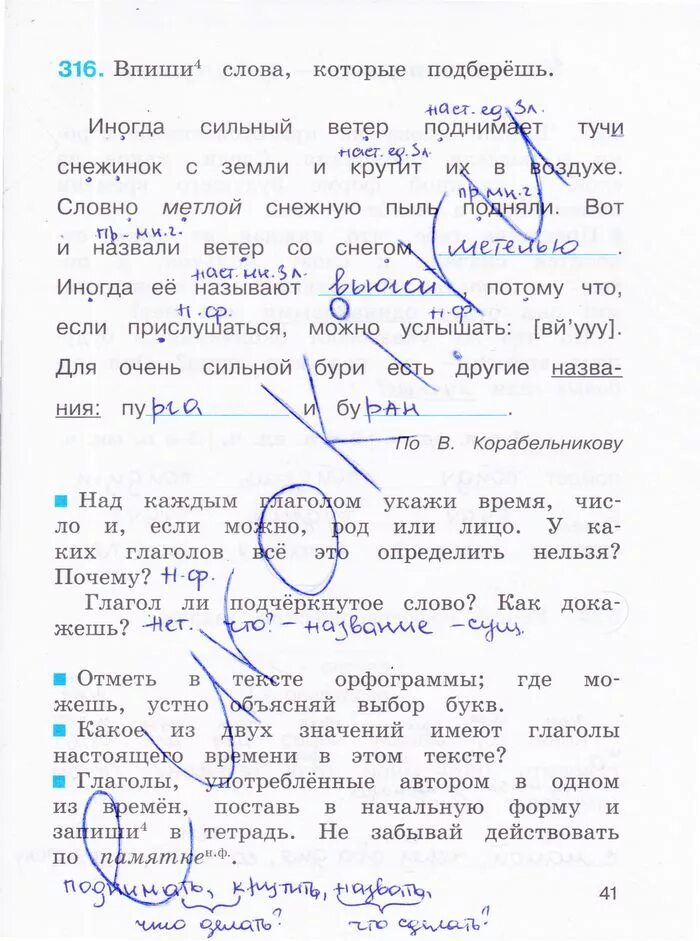 316. Впиши⁴ слова, которые подберёшь.
наст. ед. 3л.
Иногда сильный ветер поднимает тучи
наст. ед. 3л.
снежинок с земли и крутит их в воздухе.
пр. мн. ч.
Словно метлой снежную пыль подняли. Вот
пр. мн. ч.
и назвали ветер со снегом метелью
наст. мн. 3л.
Иногда её называют вьюгой, потому что,
н.ф. н.ф.
если прислушаться, можно услышать: [вй'ууу].
Для очень сильной бури есть другие назва-
ния: пурга и буран.
По В. Корабельникову
Над каждым глаголом укажи время, чис-
ло и, если можно, род или лицо. У ка-
ких глаголов всё это определить нельзя?
Почему? н.ф.
Глагол ли подчёркнутое слово? Как дока-
жешь? Нет. что? - название - сущ.
Отметь в тексте орфограммы; где мо-
жешь, устно объясняй выбор букв.
Какое из двух значений имеют глаголы
настоящего времени в этом тексте?
Глаголы, употреблённые автором в одном
из времён, поставь в начальную форму и
запиши⁴ в тетрадь. Не забывай действовать
по памятке н.ф.
поднимать, крутить, назвать,
что делать? что сделать?
41